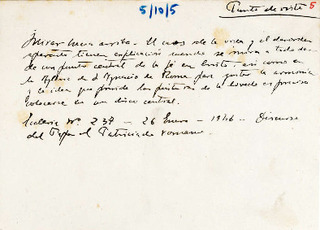 5/10/5
Punto de vista 5
Mirar hacia arriba. El caos de la vida y el desorden
aparente tienen explicación cuando se mira a todo desde
un punto central de la fe en Cristo, así como en
la de S. Ignacio de Roma para gustar la armonía
y la idea que preside las pinturas de la bóveda es preciso
colocarse en un disco central.
Ecclesia Nº 237 - 26 Enero - 1946 - Discurso
del Papa al Patriciado romano